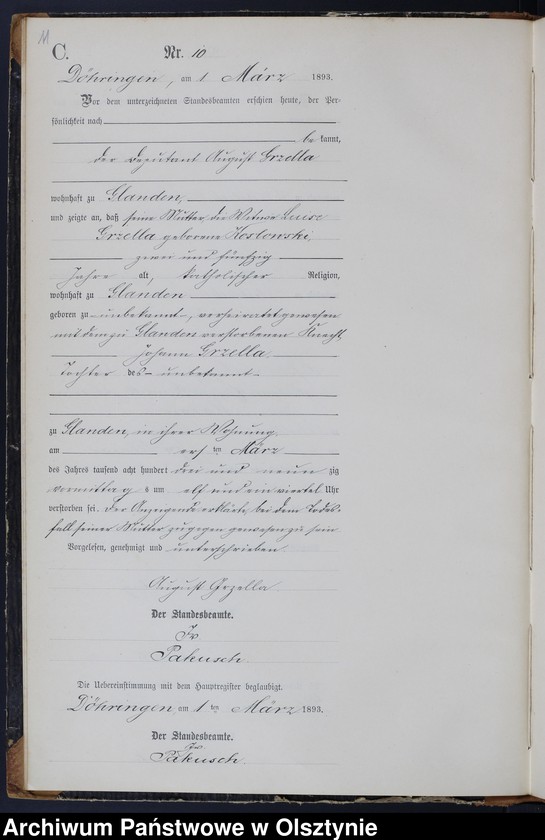 11
C.
Nr. 10
Döhringen, am 1 März 1893.
Vor dem unterzeichneten Standesbeamten erschien heute, der Per-
sönlichkeit nach
be kannt,
der Deputant August Grzella
wohnhaft zu Glanden,
und zeigte an, daß seine Mutter die Wittwe
Grzella geborene Koslowski,
zwei und fünfzig
Jahre alt, katholischer Religion,
wohnhaft zu Glanden
geboren zu unbekannt, verheirathet gewesen
mit dem zu Glanden verstorbenen Knecht
Johann Grzella
Tochter des unbekannt
zu Glanden, in ihrer Wohnung,
am ersten März
des Jahres tausend acht hundert drei und neun zig
vormittags um elf und ein viertel Uhr
verstorben sei. Der Anzeigende erklärte, bei dem Todes-
fall seiner Mutter zugegen gewesen zu sein
Vorgelesen, genehmigt und unterschrieben
August Grzella
Der Standesbeamte.
Iv
Pakusch
Die Uebereinstimmung mit dem Hauptregister beglaubigt.
Döhringen am 1 ten März 1893.
Der Standesbeamte.
Iv
Pakusch
Archiwum Państwowe w Olsztynie